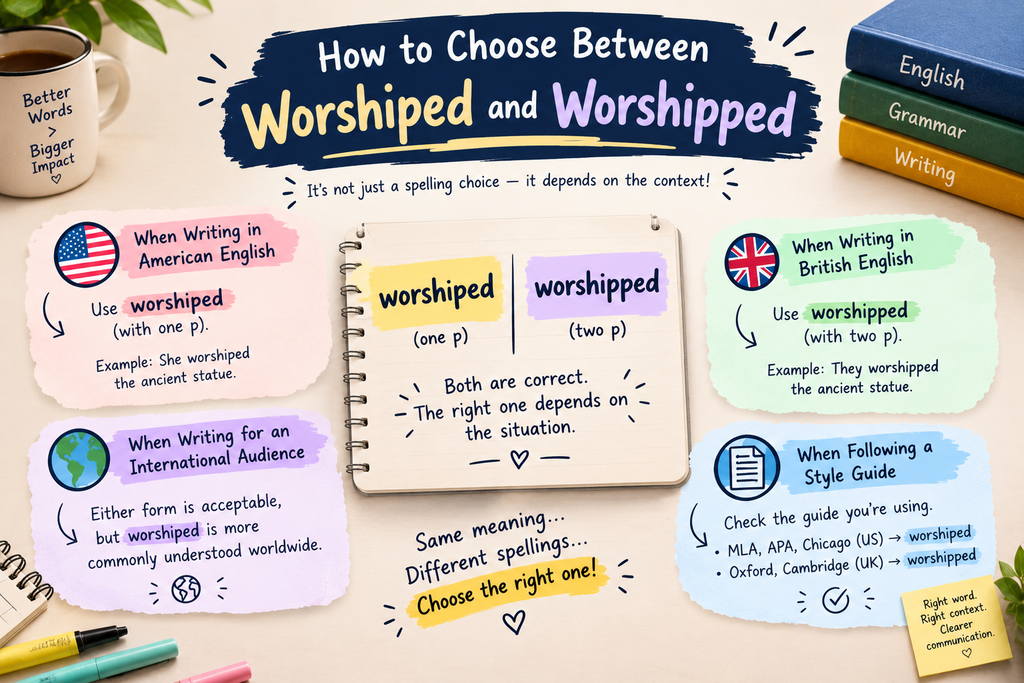 How to Choose Between
Worshiped and Worshipped
It's not just a spelling choice — it depends on the context!
Better
Words
>
Bigger
Impact
♡
English
Grammar
Writing
When Writing in
American English
Use worshiped
(with one p).
Example: She worshiped
the ancient statue.
worshiped
(one p)
worshipped
(two p)
Both are correct.
The right one depends on
the situation.
When Writing in
British English
Use worshipped
(with two p).
Example: They worshipped
the ancient statue.
When Writing for an
International Audience
Either form is acceptable,
but worshiped is more
commonly understood worldwide.
Same meaning...
Different spellings...
Choose the right one!
When Following a
Style Guide
Check the guide you're using.
• MLA, APA, Chicago (US) → worshiped
• Oxford, Cambridge (UK) → worshipped
Right word.
Right context.
Clearer
communication.
♡